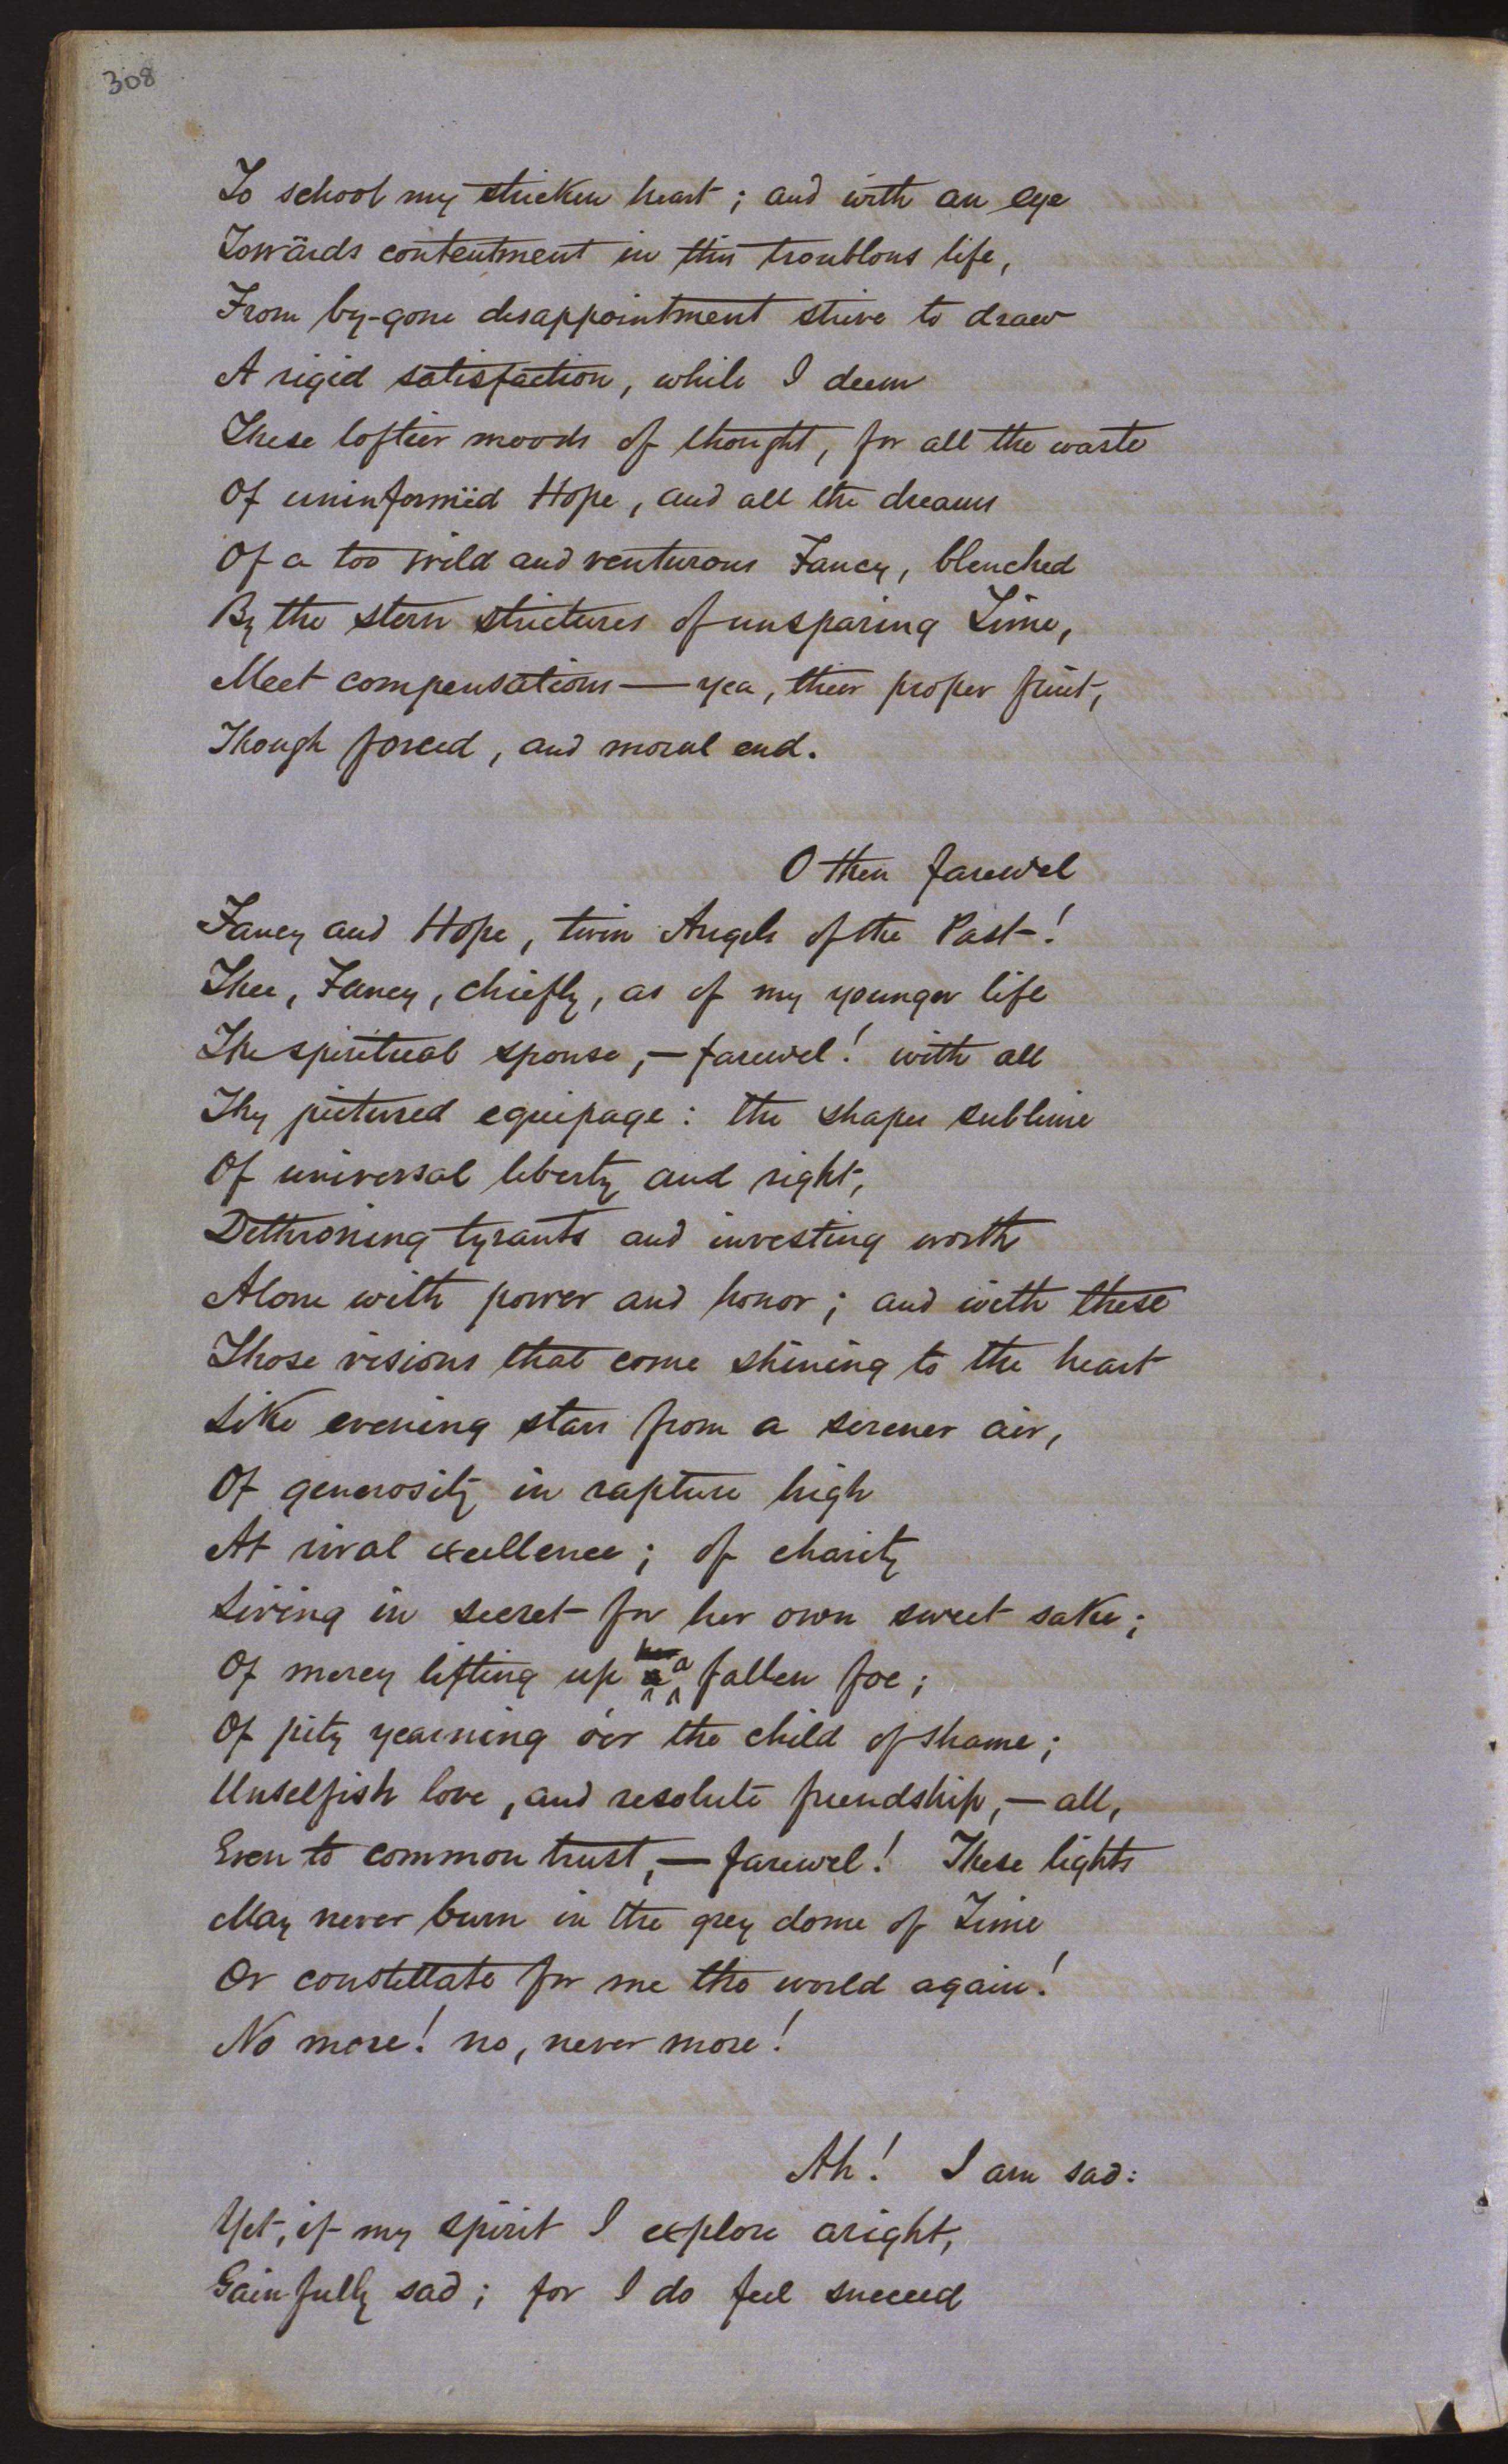 308
To school my stricken heart; and with an eye
Towärds contentment in this troublous life,
From by-gone disappointment strive to draw
A rigid satisfaction, while I deem
These loftier moods of thought, for all the waste
Of uninformëd Hope, and all the dreams
Of a too wild and venturous Fancy, blenched
By the stern strictures of unsparing Time,
Meet compensations — yea, their proper fruit,
Though forced, and moral end.
O then farewel
Fancy and Hope, twin Angels of the Past!
Thee, Fancy, chiefly, as of my younger life
The spiritual spouse, — farewel! with all
Thy pictured equipage: the shapes sublime
Of universal liberty and right,
Dethroning tyrants and investing worth
Alone with power and honor; and with these
Those visions that come shining to the heart
Like evening stars from a serener air,
Of generosity in rapture high
At rival excellence; of charity
Living in secret for her own sweet sake;
Of mercy lifting up a fallen foe;
Of pity yearning o'er the child of shame;
Unselfish love, and resolute friendship, — all,
Even to common trust, — farewel! These lights
May never burn in the grey dome of Time
Or constellate for me the world again!
No more! no, never more!
Ah! I am sad:
Yet, if my spirit I explore aright,
Gainfully sad; for I do feel succeed